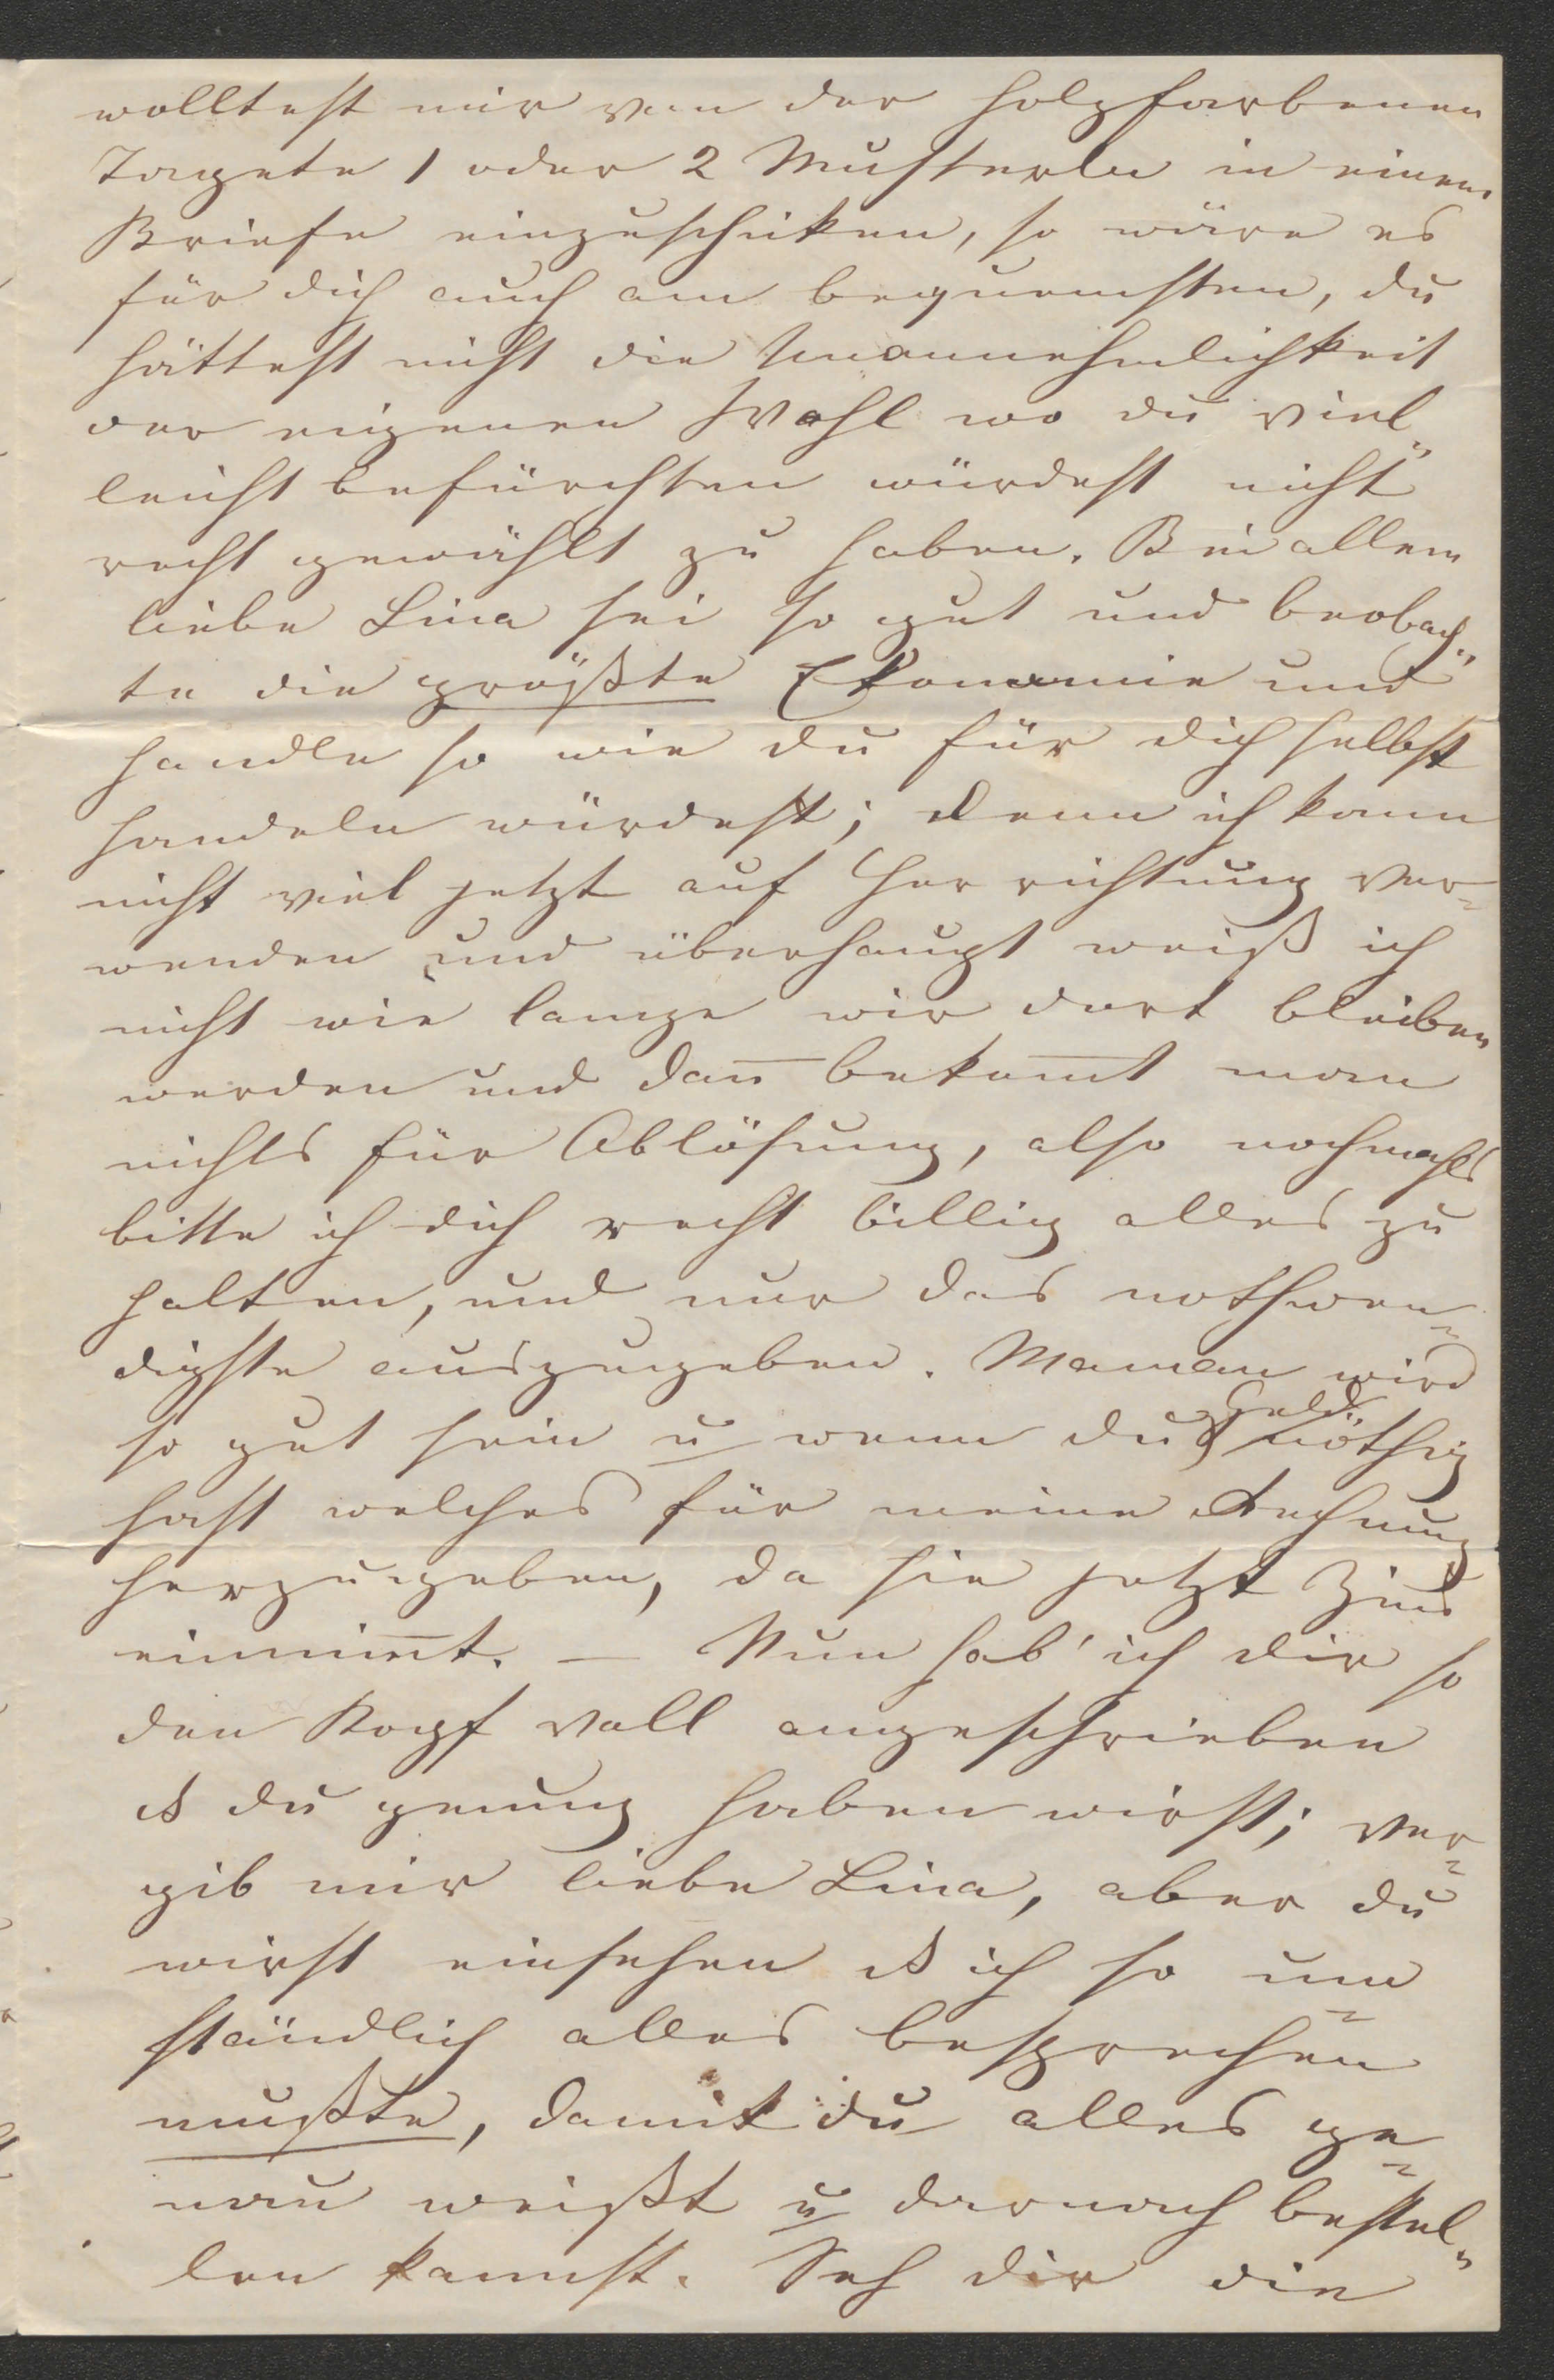 wolltest mir von der holzfarbenen
Tapete 1 oder 2 Musterln in einem
Briefe einzuschicken, so wäre es
für dich auch am bequemsten, du
hättest nicht die Unannehmlichkeit
der eigenen Wahl wo du viel„
leicht befürchten würdest nicht
recht gewählt zu haben. Bei allem
liebe Lina sei so gut und beobach„
te die größte Ekonomie und
handle so wie du für dich selbst
handeln würdest; denn ich kann
nicht viel jetzt auf Herrichtung ver=
wenden und überhaupt weiß ich
nicht wie lange wir dort bleiben
werden und dan̄ bekom̄t man
nichts für Ablösung, also nochmahls
bitte ich dich recht billig alles zu
halten, und nur das nothwen=
digste auszugeben. Maman wird
so gut sein u wenn du Geld nöthig
hast welches für meine Rechnung
herzugeben, da sie jetzt Zins
einnim̄t. — Nun hab' ich dir so
den Kopf voll angeschrieben
ds du genung haben wirst; ver=
gib mir liebe Lina, aber du
wirst einsehen ds ich so um=
ständlich alles besprechen
mußte, damit du alles ge=
nau weißt u darnach bestel„
len kannst. Seh dir die